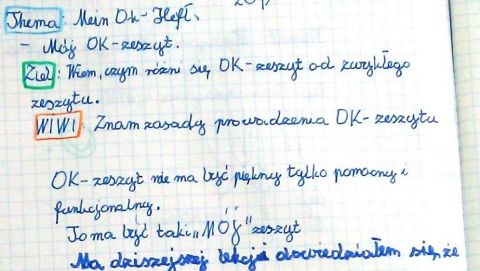 Thema: Mein OK-Heft.
- Mój OK-zeszyt.
Ziel: Wiem, czym różni się OK-zeszyt od zwykłego
zeszytu.
WIWI: Znam zasady prowadzenia OK-zeszytu
OK-zeszyt nie ma być piękny tylko pomocny i
funkcjonalny.
To ma być taki „MÓJ" zeszyt
Na dzisiejszej lekcji dowiedziałem się, że